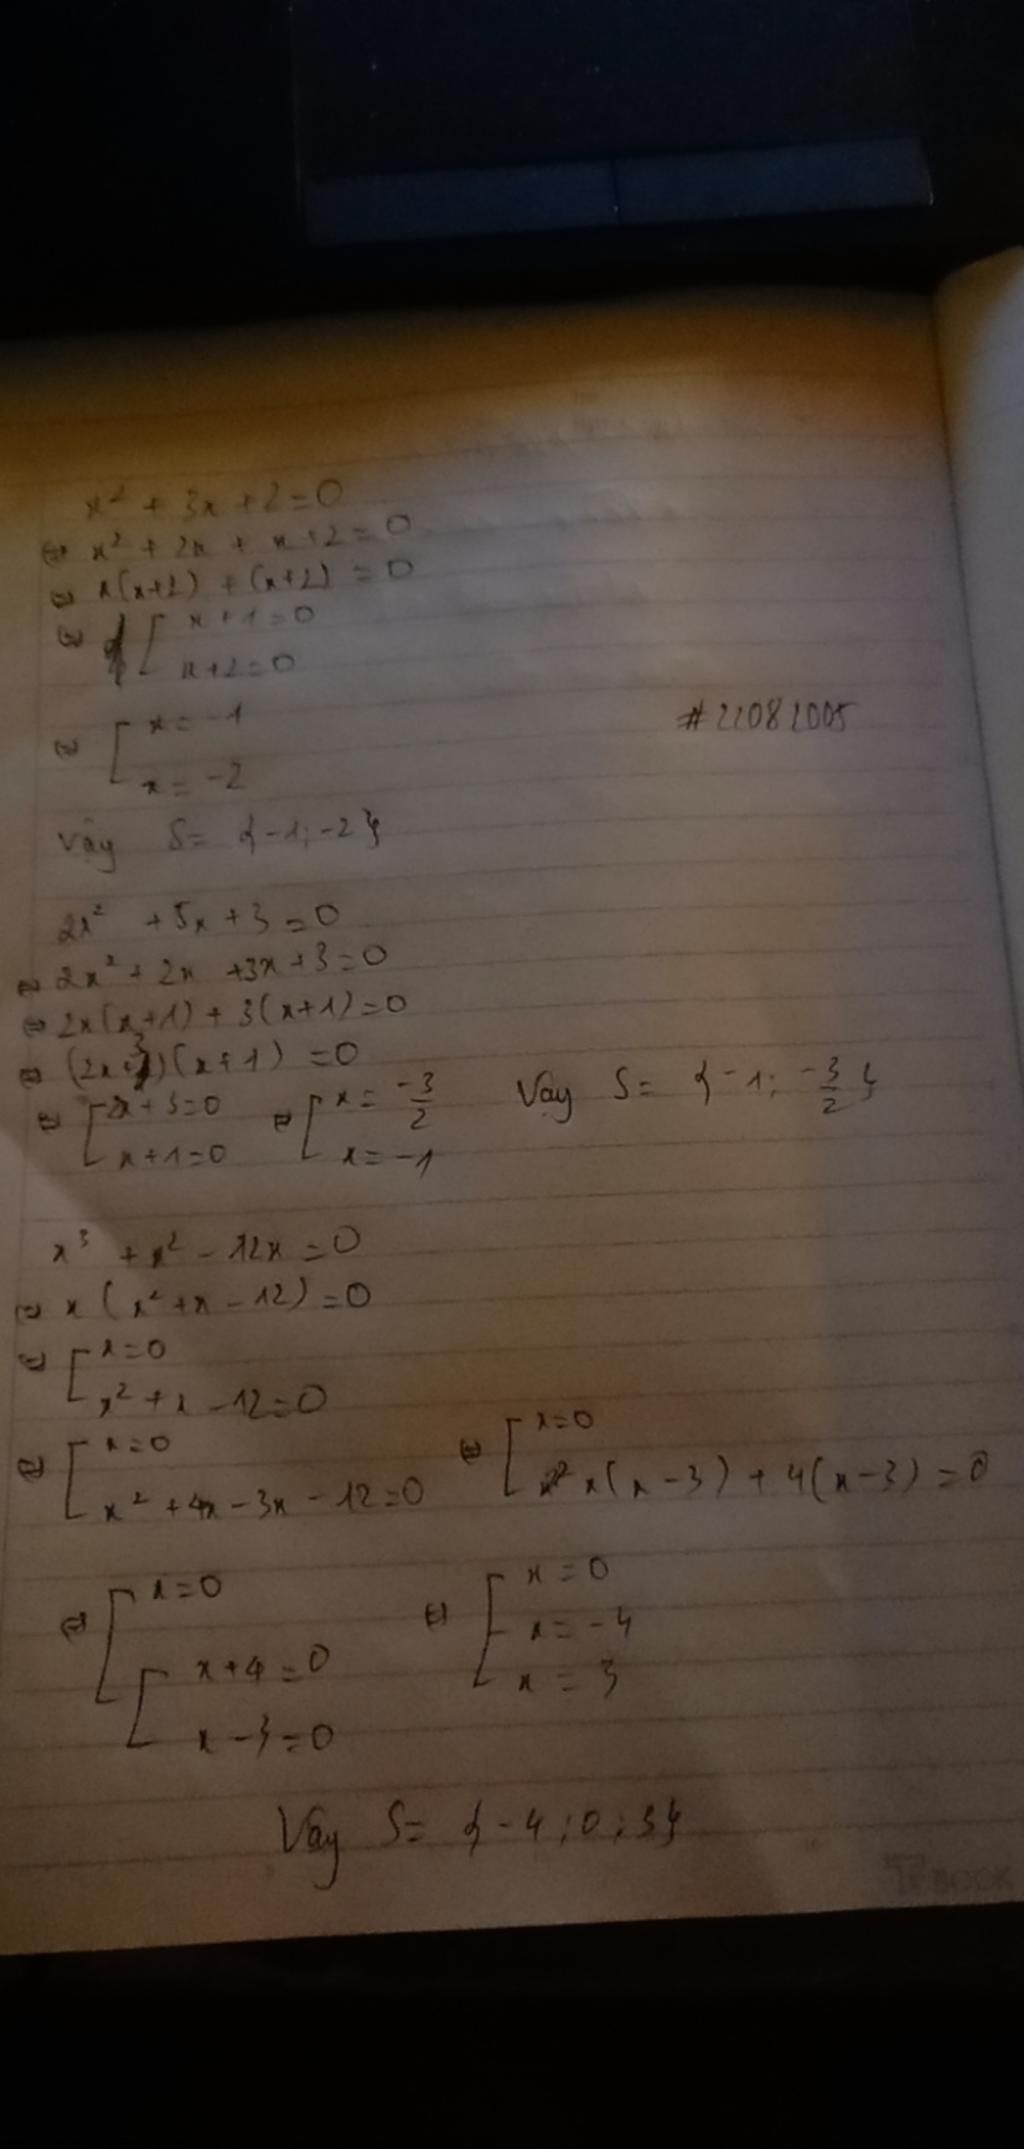 x² + 3x + 2 = 0
⇔ x² + 2x + x + 2 = 0
⇔ x(x+2) + (x+2) = 0
⇔ [ x + 1 = 0
x + 2 = 0
⇔ [ x = -1
x = -2
#22082005
Vậy S = {-1; -2}
2x² + 5x + 3 = 0
⇔ 2x² + 2x + 3x + 3 = 0
⇔ 2x(x+1) + 3(x+1) = 0
⇔ (2x+3)(x+1) = 0
⇔ [ 2x + 3 = 0 ⇔ [ x = -3/2 Vậy S = {-1; -3/2}
x + 1 = 0 x = -1
x³ + x² - 12x = 0
⇔ x(x² + x - 12) = 0
⇔ [ x = 0
x² + x - 12 = 0
⇔ [ x = 0 ⇔ [ x = 0
x² + 4x - 3x - 12 = 0 x(x-3) + 4(x-3) = 0
⇔ [ x = 0 ⇔ [ x = 0
[ x + 4 = 0 x = -4
x - 3 = 0 x = 3
Vậy S = {-4; 0; 3}
BOOK